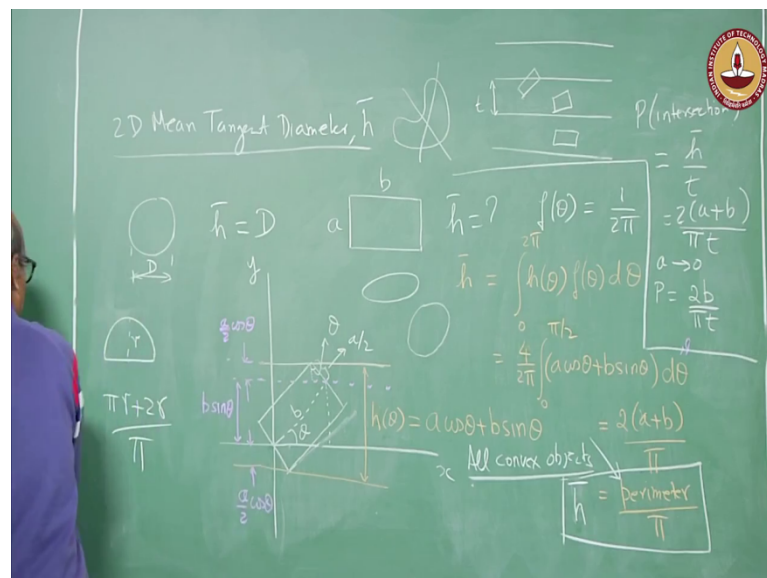 INDIAN INSTITUTE OF TECHNOLOGY MADRAS
2D Mean Tangent Diameter, h̄
t
P(intersection)
= h̄/t
= 2(a+b)/πt
a→0
P = 2b/πt
D
h̄ = D
b
a
h̄ = ?
f(θ) = 1/2π
h̄ = ∫₀^2π h(θ) f(θ) dθ
= 4/2π ∫₀^π/2 (a cosθ + b sinθ) dθ
= 2(a+b)/π
r
πr+2r/π
y
a/2 cosθ
b sinθ
a/2 cosθ
θ
a/2
b
θ
x
h(θ) = a cosθ + b sinθ
All convex objects
h̄ = perimeter/π